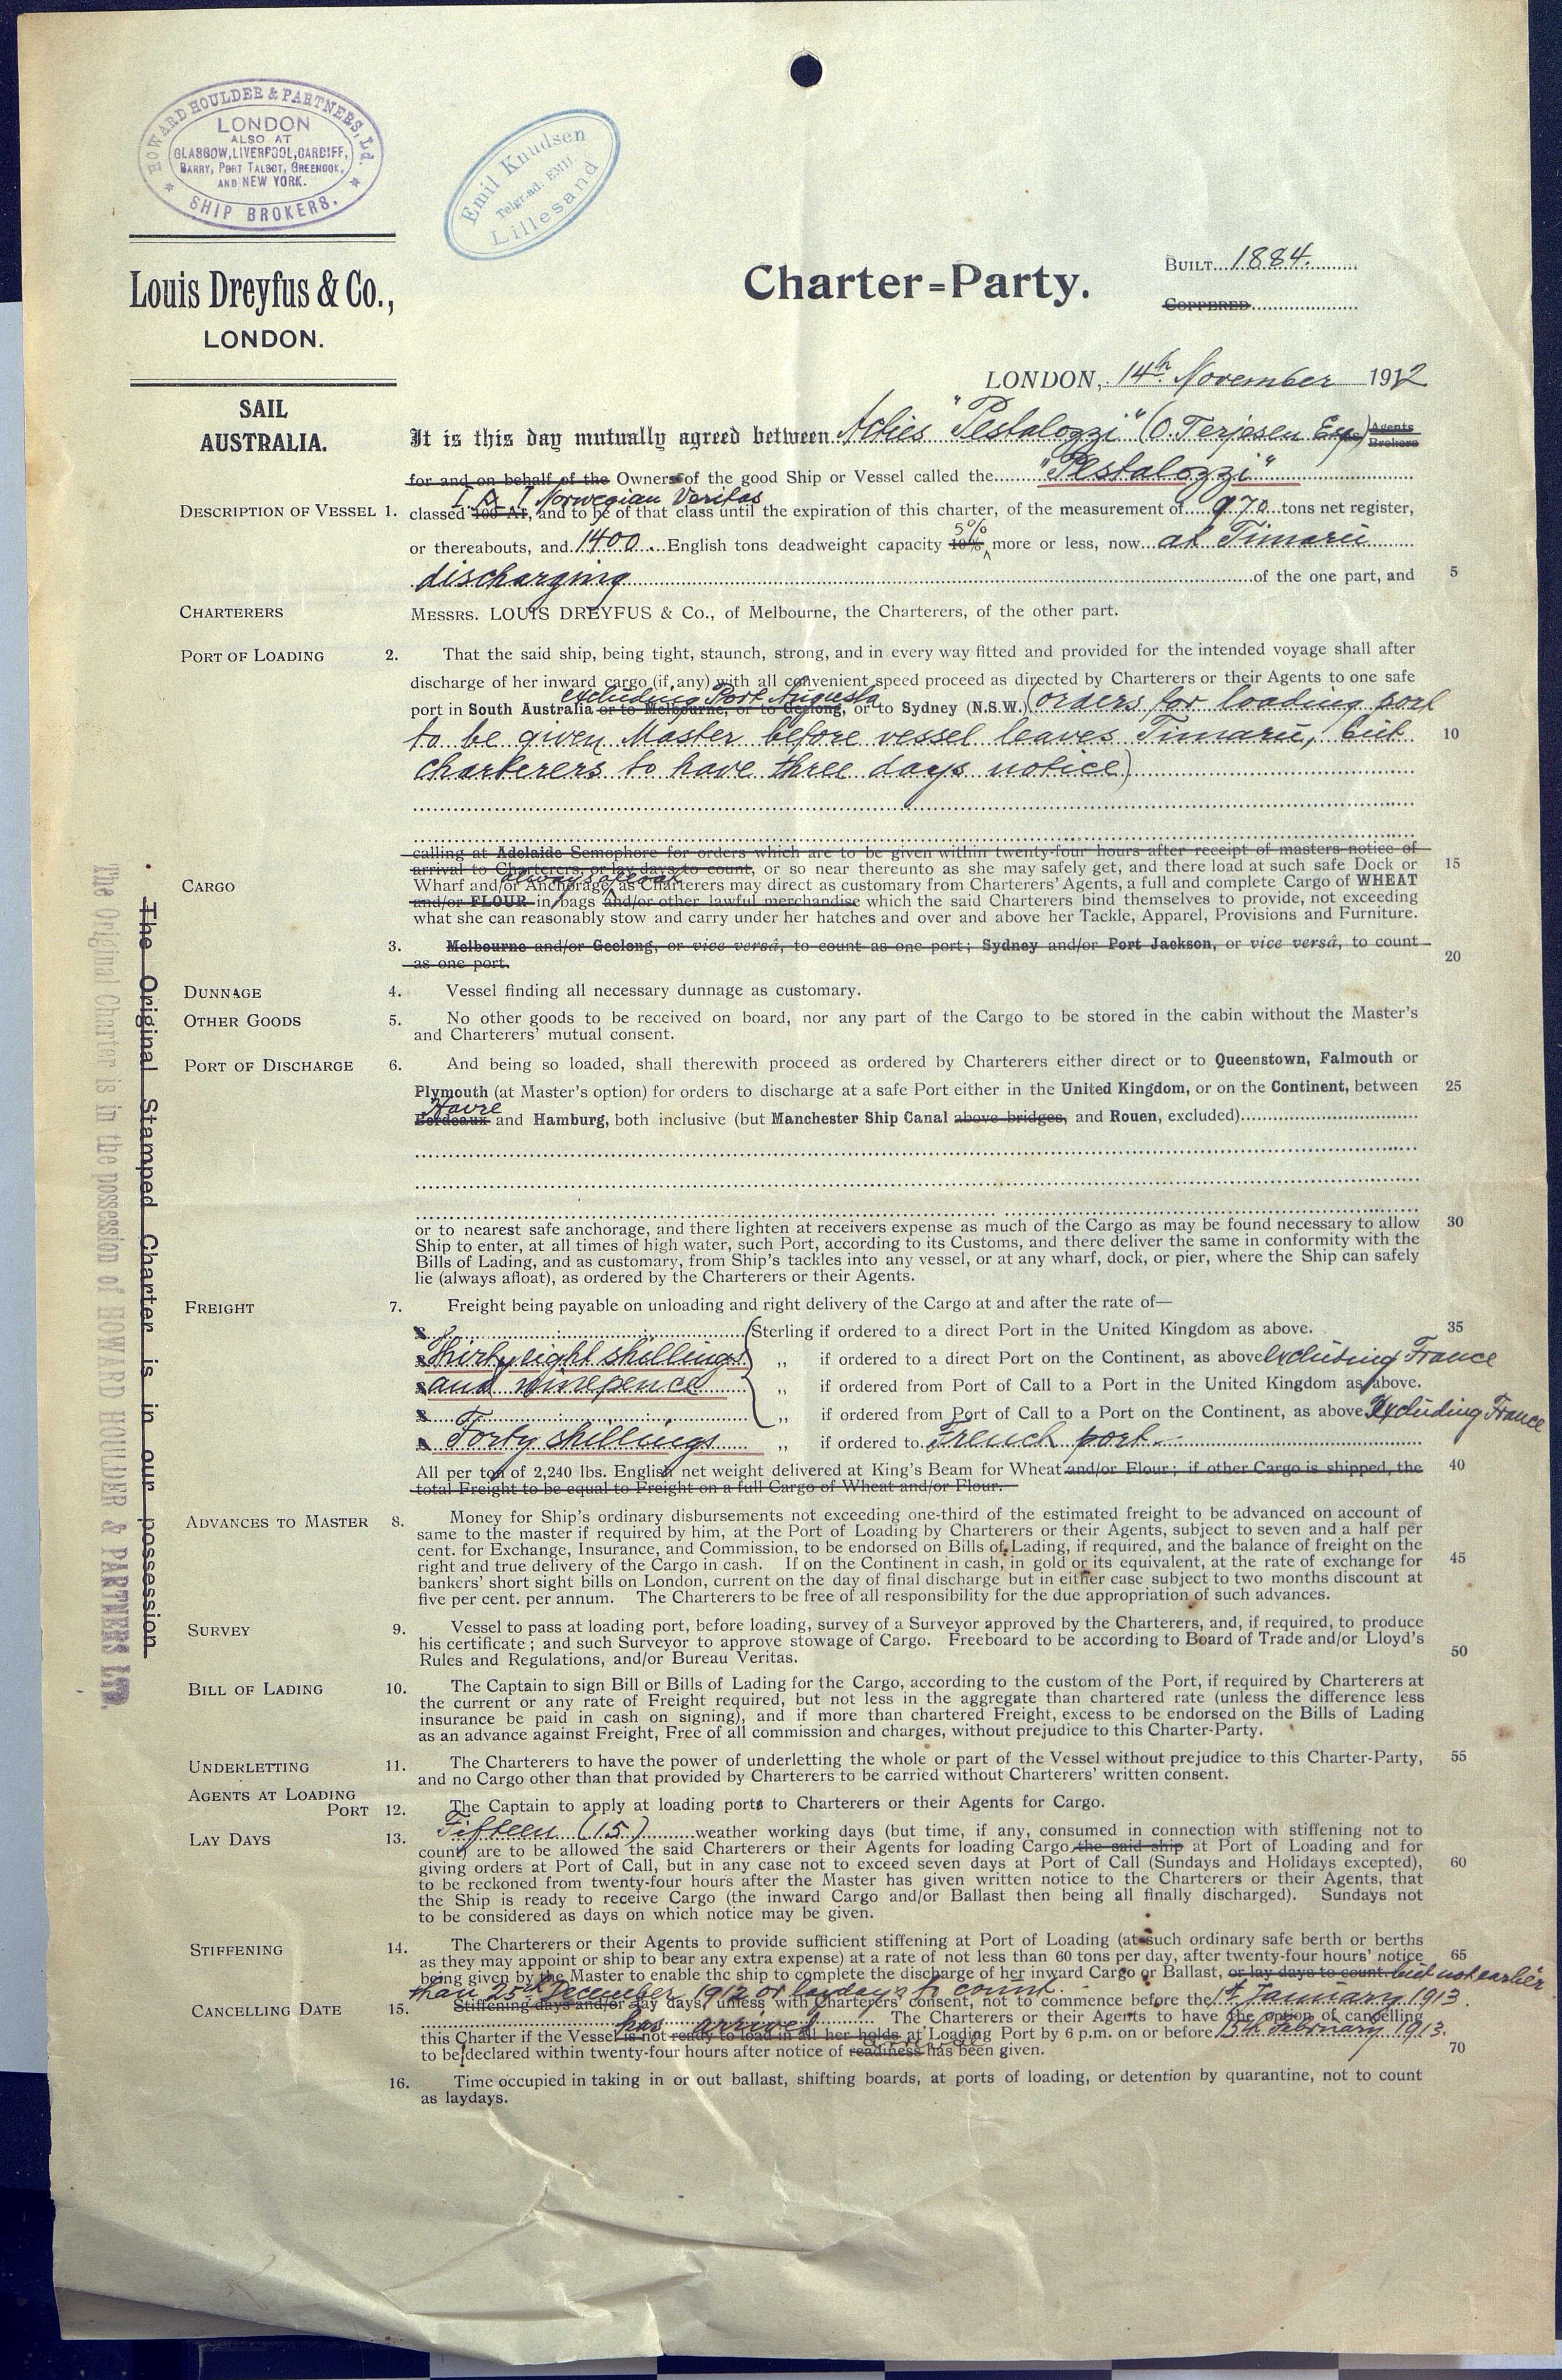 HOWARD HOULDER & PARTNERS, Ld.
LONDON
ALSO AT
GLASGOW, LIVERPOOL, CARDIFF,
BARRY, PORT TALBOT, GREENOCK,
AND NEW YORK.
SHIP BROKERS.
Emil Knudsen
Telgr.ad. EMIL
Lillesand
Louis Dreyfus & Co.,
LONDON.
Charter=Party.
BUILT 1884.
COPPERED
LONDON, 14th November 1912
SAIL
AUSTRALIA.
It is this day mutually agreed between Acties "Pestalozzi" (O. Terjesen Esq) Agents Brokers
for and on behalf of the Owners of the good Ship or Vessel called the "Pestalozzi"
Norwegian Veritas
DESCRIPTION OF VESSEL 1. classed 100 A1, and to be of that class until the expiration of this charter, of the measurement of 970 tons net register,
5%
or thereabouts, and 1400 English tons deadweight capacity 10% more or less, now at Timaru
discharging of the one part, and 5
CHARTERERS MESSRS. LOUIS DREYFUS & Co., of Melbourne, the Charterers, of the other part.
PORT OF LOADING 2. That the said ship, being tight, staunch, strong, and in every way fitted and provided for the intended voyage shall after
discharge of her inward cargo (if any) with all convenient speed proceed as directed by Charterers or their Agents to one safe
excluding Port Augusta
port in South Australia or to Melbourne, or to Geelong, or to Sydney (N.S.W.) (orders for loading port
to be given Master before vessel leaves Timaru, but 10
charterers to have three days notice)
calling at Adelaide Semophore for orders which are to be given within twenty-four hours after receipt of masters notice of
arrival to Charterers, or lay days to count, or so near thereunto as she may safely get, and there load at such safe Dock or 15
always afloat
CARGO Wharf and/or Anchorage, as Charterers may direct as customary from Charterers' Agents, a full and complete Cargo of WHEAT
and/or FLOUR in bags and/or other lawful merchandise which the said Charterers bind themselves to provide, not exceeding
what she can reasonably stow and carry under her hatches and over and above her Tackle, Apparel, Provisions and Furniture.
3. Melbourne and/or Geelong, or vice versâ, to count as one port; Sydney and/or Port Jackson, or vice versâ, to count
as one port. 20
DUNNAGE 4. Vessel finding all necessary dunnage as customary.
OTHER GOODS 5. No other goods to be received on board, nor any part of the Cargo to be stored in the cabin without the Master's
and Charterers' mutual consent.
PORT OF DISCHARGE 6. And being so loaded, shall therewith proceed as ordered by Charterers either direct or to Queenstown, Falmouth or
Plymouth (at Master's option) for orders to discharge at a safe Port either in the United Kingdom, or on the Continent, between 25
Havre
Bordeaux and Hamburg, both inclusive (but Manchester Ship Canal above bridges, and Rouen, excluded)
or to nearest safe anchorage, and there lighten at receivers expense as much of the Cargo as may be found necessary to allow 30
Ship to enter, at all times of high water, such Port, according to its Customs, and there deliver the same in conformity with the
Bills of Lading, and as customary, from Ship's tackles into any vessel, or at any wharf, dock, or pier, where the Ship can safely
lie (always afloat), as ordered by the Charterers or their Agents.
FREIGHT 7. Freight being payable on unloading and right delivery of the Cargo at and after the rate of—
Sterling if ordered to a direct Port in the United Kingdom as above. 35
Thirty eight shillings ,, if ordered to a direct Port on the Continent, as above excluding France
and ninepence ,, if ordered from Port of Call to a Port in the United Kingdom as above.
,, if ordered from Port of Call to a Port on the Continent, as above. Excluding France
Forty shillings ,, if ordered to French port
All per ton of 2,240 lbs. English net weight delivered at King's Beam for Wheat and/or Flour; if other Cargo is shipped, the 40
total Freight to be equal to Freight on a full Cargo of Wheat and/or Flour.
ADVANCES TO MASTER 8. Money for Ship's ordinary disbursements not exceeding one-third of the estimated freight to be advanced on account of
same to the master if required by him, at the Port of Loading by Charterers or their Agents, subject to seven and a half per
cent. for Exchange, Insurance, and Commission, to be endorsed on Bills of Lading, if required, and the balance of freight on the
right and true delivery of the Cargo in cash. If on the Continent in cash, in gold or its equivalent, at the rate of exchange for 45
bankers' short sight bills on London, current on the day of final discharge but in either case subject to two months discount at
five per cent. per annum. The Charterers to be free of all responsibility for the due appropriation of such advances.
SURVEY 9. Vessel to pass at loading port, before loading, survey of a Surveyor approved by the Charterers, and, if required, to produce
his certificate; and such Surveyor to approve stowage of Cargo. Freeboard to be according to Board of Trade and/or Lloyd's
Rules and Regulations, and/or Bureau Veritas. 50
BILL OF LADING 10. The Captain to sign Bill or Bills of Lading for the Cargo, according to the custom of the Port, if required by Charterers at
the current or any rate of Freight required, but not less in the aggregate than chartered rate (unless the difference less
insurance be paid in cash on signing), and if more than chartered Freight, excess to be endorsed on the Bills of Lading
as an advance against Freight, Free of all commission and charges, without prejudice to this Charter-Party.
UNDERLETTING 11. The Charterers to have the power of underletting the whole or part of the Vessel without prejudice to this Charter-Party, 55
and no Cargo other than that provided by Charterers to be carried without Charterers' written consent.
AGENTS AT LOADING
PORT 12. The Captain to apply at loading ports to Charterers or their Agents for Cargo.
LAY DAYS 13. Fifteen (15) weather working days (but time, if any, consumed in connection with stiffening not to
count) are to be allowed the said Charterers or their Agents for loading Cargo the said ship at Port of Loading and for
giving orders at Port of Call, but in any case not to exceed seven days at Port of Call (Sundays and Holidays excepted), 60
to be reckoned from twenty-four hours after the Master has given written notice to the Charterers or their Agents, that
the Ship is ready to receive Cargo (the inward Cargo and/or Ballast then being all finally discharged). Sundays not
to be considered as days on which notice may be given.
STIFFENING 14. The Charterers or their Agents to provide sufficient stiffening at Port of Loading (at such ordinary safe berth or berths
as they may appoint or ship to bear any extra expense) at a rate of not less than 60 tons per day, after twenty-four hours' notice 65
being given by the Master to enable the ship to complete the discharge of her inward Cargo or Ballast, or lay days to count. but not earlier
than 25th December 1912 or laydays to count.
CANCELLING DATE 15. Stiffening days and/or lay days, unless with Charterers' consent, not to commence before the 1st January 1913.
The Charterers or their Agents to have the option of cancelling
has arrived
this Charter if the Vessel is not ready to load in all her holds at Loading Port by 6 p.m. on or before 15th February 1913.
arrival
to be declared within twenty-four hours after notice of readiness has been given. 70
16. Time occupied in taking in or out ballast, shifting boards, at ports of loading, or detention by quarantine, not to count
as laydays.
The Original Stamped Charter is in our possession
The Original Charter is in the possession of HOWARD HOULDER & PARTNERS LTD.